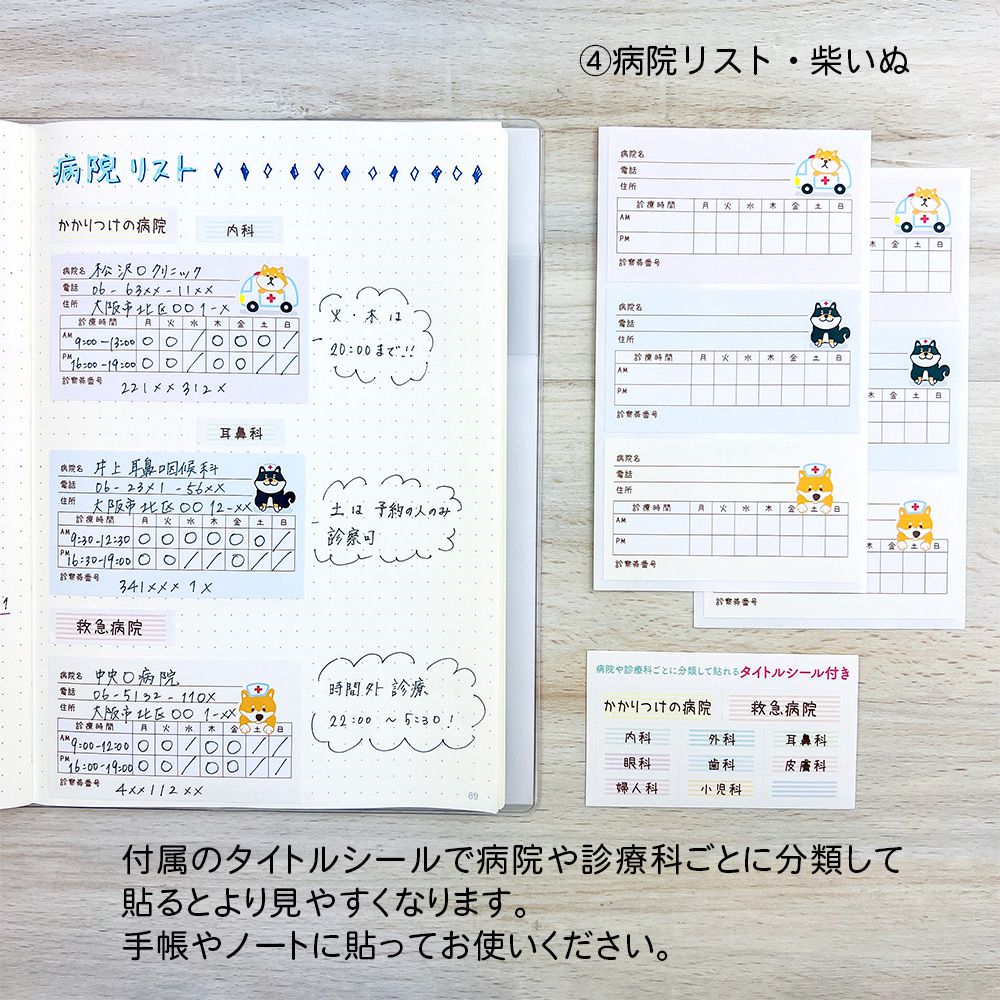 ④病院リスト・柴いぬ
病院リスト
かかりつけの病院
内科
病院名 松沢〇クリニック
電話 06-63××-11××
住所 大阪市北区〇〇1-×
診療時間 月 火 水 木 金 土 日
AM 9:00-13:00 〇 〇 / 〇 〇 〇 /
PM 16:00-19:00 〇 〇 / 〇 〇 / /
診察券番号
221××312×
火・木は
20:00まで!!
耳鼻科
病院名 井上耳鼻咽候科
電話 06-23×1-56××
住所 大阪市北区〇〇12-××
診療時間 月 火 水 木 金 土 日
AM 9:30-12:30 〇 〇 〇 〇 〇 〇 /
PM 16:30-19:00 〇 〇 / / 〇 / /
診察券番号
341×××1×
土は予約の人のみ
診察可
救急病院
病院名 中央〇病院
電話 06-5132-110×
住所 大阪市北区〇〇1-××
診療時間 月 火 水 木 金 土 日
AM 9:00-12:00 〇 〇 / 〇 〇 / /
PM 16:00-19:00 〇 〇 / 〇 〇 / /
診察券番号
4××112××
時間外診療
22:00～5:30!
89
病院名
電話
住所
診療時間 月 火 水 木 金 土 日
AM
PM
診察券番号
病院名
電話
住所
診療時間 月 火 水 木 金 土 日
AM
PM
診察券番号
病院名
電話
住所
診療時間 月 火 水 木 金 土 日
AM
PM
診察券番号
木 金 土 日
木 金 土 日
木 金 土 日
診察券番号
病院や診療科ごとに分類して貼れるタイトルシール付き
かかりつけの病院 救急病院
内科 外科 耳鼻科
眼科 歯科 皮膚科
婦人科 小児科
付属のタイトルシールで病院や診療科ごとに分類して
貼るとより見やすくなります。
手帳やノートに貼ってお使いください。